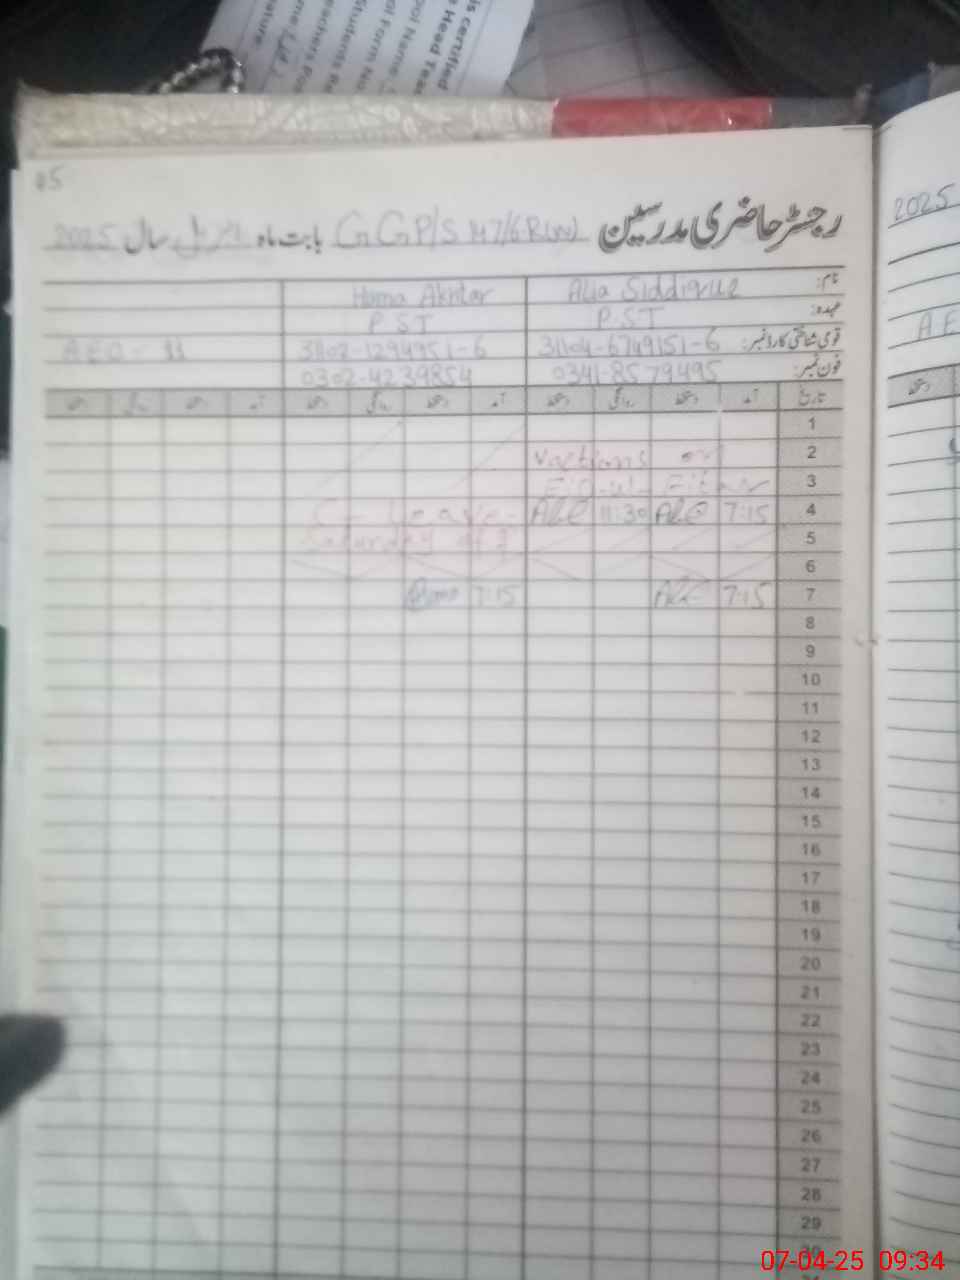 is certified
Head Teac
ool Name
ool Form No
Students
Teachers
ature
05
رجسٹر حاضری مدرسین GGP/S 117/6-R(W) بابت ماہ اپریل سال 2025
2025
نام: Alia Siddique Huma Akhtar
عہدہ: P.ST P ST
قومی شناختی کارڈ نمبر: 31104-6749151-6 31102-1294951-6 AEO - 11
A E
فون نمبر: 0341-8579495 0302-4239854
تاریخ آمد دستخط روانگی دستخط آمد دستخط روانگی دستخط آمد دستخط روانگی دستخط
دستخط
1
2 vactions on
3 Eid-ul-Fitar
4 7:15 11:30 C- Leave-
5 Saturday off
6
7 7:15 7:15
8
9
10
11
12
13
14
15
16
17
18
19
20
21
22
23
24
25
26
27
28
29
30
07-04-25 09:34